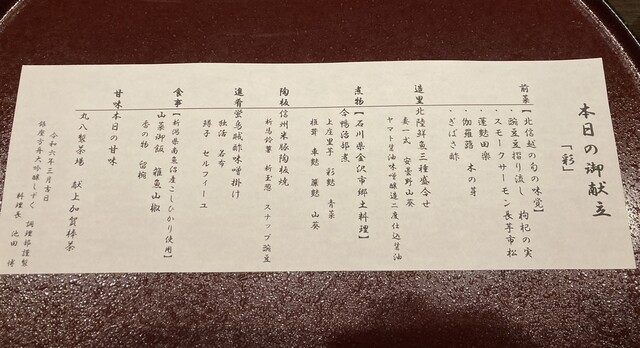 本日の御献立
「彩」
前菜【北信越の旬の味覚】
・豌豆豆摺り流し 枸杞の実
・スモークサーモン長芋市松
・蓬麩田楽
・伽羅蕗 木の芽
・ぎばさ酢
造里 北陸鮮魚三種盛合せ
妻一式 安曇野山葵
ヤマト醤油味噌醸造二度仕込醤油
煮物【石川県金沢市郷土料理】
合鴨治部煮
上庄里芋 彩麩 青菜
椎茸 車麩 簾麩 山葵
陶板 信州米豚陶板焼
新馬鈴薯 新玉葱 スナップ豌豆
進肴 蛍烏賊酢味噌掛け
独活 若布
蟳子 セルフィーユ
食事【新潟県南魚沼産こしひかり使用】
山菜御飯 雑魚山椒
香の物 留椀
甘味 本日の甘味
丸八製茶場 献上加賀棒茶
令和六年三月吉日
銀座方舟大吟醸しずく 調理部謹製
料理長 池田 博